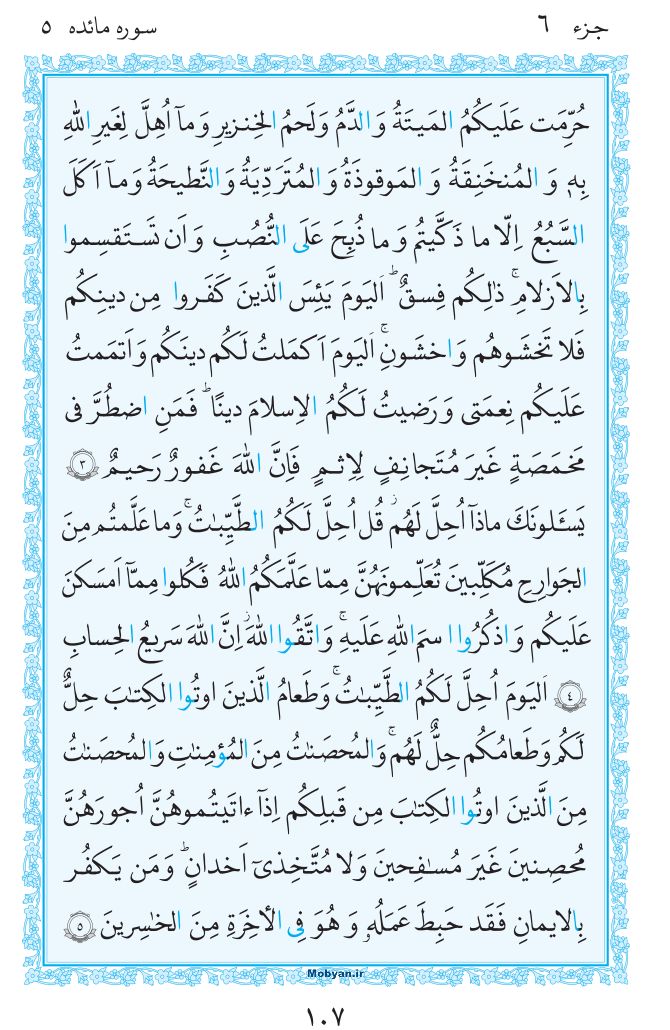 جزء ٦ سوره مائده ٥
حُرِّمَت عَلَيكُمُ المَيتَةُ وَالدَّمُ وَلَحمُ الخِنزيرِ وَمآ اُهِلَّ لِغَيرِ اللهِ
بِهٖ وَ المُنخَنِقَةُ وَ المَوقوذَةُ وَ المُتَرَدِّيَةُ وَ النَّطيحَةُ وَمآ اَكَلَ
السَّبُعُ اِلّا ما ذَكَّيتُم وَ ما ذُبِحَ عَلَى النُّصُبِ وَ اَن تَستَقسِموا
بِالاَزلامِۚ ذٰلِكُم فِسقٌۗ اَليَومَ يَئِسَ الَّذينَ كَفَروا مِن دينِكُم
فَلا تَخشَوهُم وَاخشَونِۚ اَليَومَ اَكمَلتُ لَكُم دينَكُم وَاَتمَمتُ
عَلَيكُم نِعمَتى وَ رَضيتُ لَكُمُ الاِسلامَ دينًاۗ فَمَنِ اضطُرَّ فى
مَخمَصَةٍ غَيرَ مُتَجانِفٍ لِاِثمٍ فَاِنَّ اللهَ غَفورٌ رَحيمٌ ٣
يَسئَلونَكَ ماذآ اُحِلَّ لَهُمۖ قُل اُحِلَّ لَكُمُ الطَّيِّبٰتُۚ وَما عَلَّمتُم مِنَ
الجَوارِحِ مُكَلِّبينَ تُعَلِّمونَهُنَّ مِمّا عَلَّمَكُمُ اللهُ فَكُلوا مِمّآ اَمسَكنَ
عَلَيكُم وَاذكُرُوا اسمَ اللهِ عَلَيهِۚ وَاتَّقُوا اللهَۚ اِنَّ اللهَ سَريعُ الحِسابِ
٤ اَليَومَ اُحِلَّ لَكُمُ الطَّيِّبٰتُۚ وَطَعامُ الَّذينَ اوتُوا الكِتٰبَ حِلٌّ
لَكُم وَطَعامُكُم حِلٌّ لَهُمۚ وَالمُحصَنٰتُ مِنَ المُؤمِنٰتِ وَالمُحصَنٰتُ
مِنَ الَّذينَ اوتُوا الكِتٰبَ مِن قَبلِكُم اِذآ ءاتَيتُموهُنَّ اُجورَهُنَّ
مُحصِنينَ غَيرَ مُسٰفِحينَ وَلا مُتَّخِذىٓ اَخدانٍۗ وَمَن يَكفُر
بِالايمانِ فَقَد حَبِطَ عَمَلُهٗ وَ هُوَ فِى الأٰخِرَةِ مِنَ الخٰسِرينَ ٥
Mobyan.ir
١٠٧